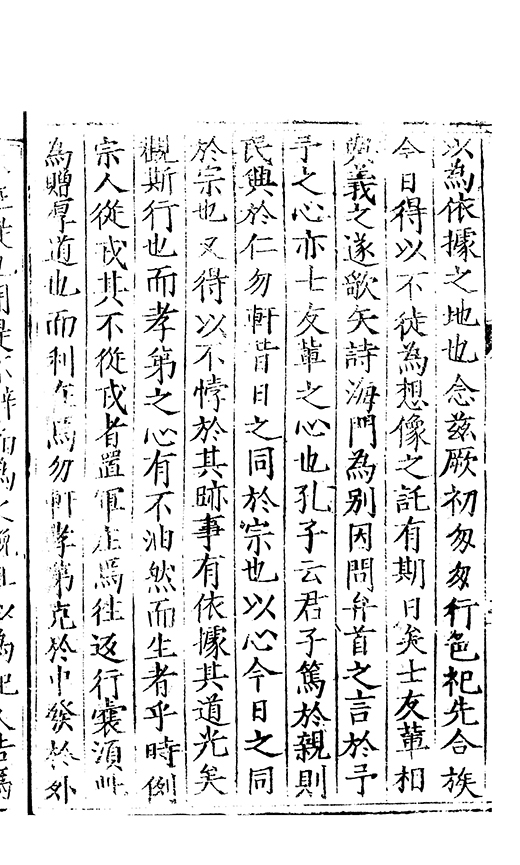 以為依據之地也念茲厥初匆匆行色祀先合族
今日得以不徒為想像之託有期日矣士友輩相
與義之遂歌矢詩海門為別因問弁首之言於予
予之心亦士友輩之心也孔子云君子篤於親則
民興於仁勿軒昔日之同於宗也以心今日之同
於宗也又得以不悖於其跡事有依據其道光矣
觀斯行也而孝第之心有不油然而生者乎時例
宗人從戍其不從戍者置軍庄焉往返行囊須此
為贈厚道也而利在焉勿軒孝第克於中發於外